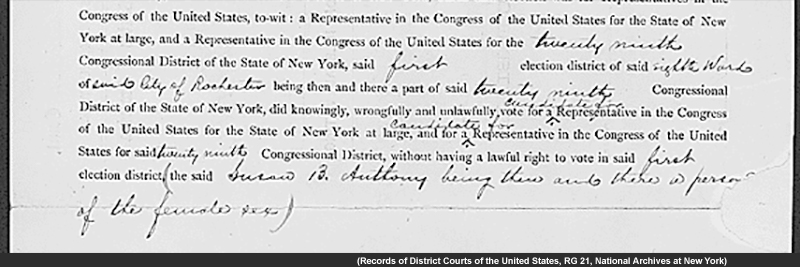 Congress of the United States, to-wit: a Representative in the Congress of the United States for the State of New
York at large, and a Representative in the Congress of the United States for the twenty ninth
Congressional District of the State of New York, said first election district of said eighth Ward
of said City of Rochester being then and there a part of said twenty ninth Congressional
District of the State of New York, did knowingly, wrongfully and unlawfully vote for a candidate for Representative in the Congress
of the United States for the State of New York at large, and for a candidate for Representative in the Congress of the United
States for said twenty ninth Congressional District, without having a lawful right to vote in said first
election district, (the said Susan B. Anthony being then and there a person
of the female sex)
(Records of District Courts of the United States, RG 21, National Archives at New York)